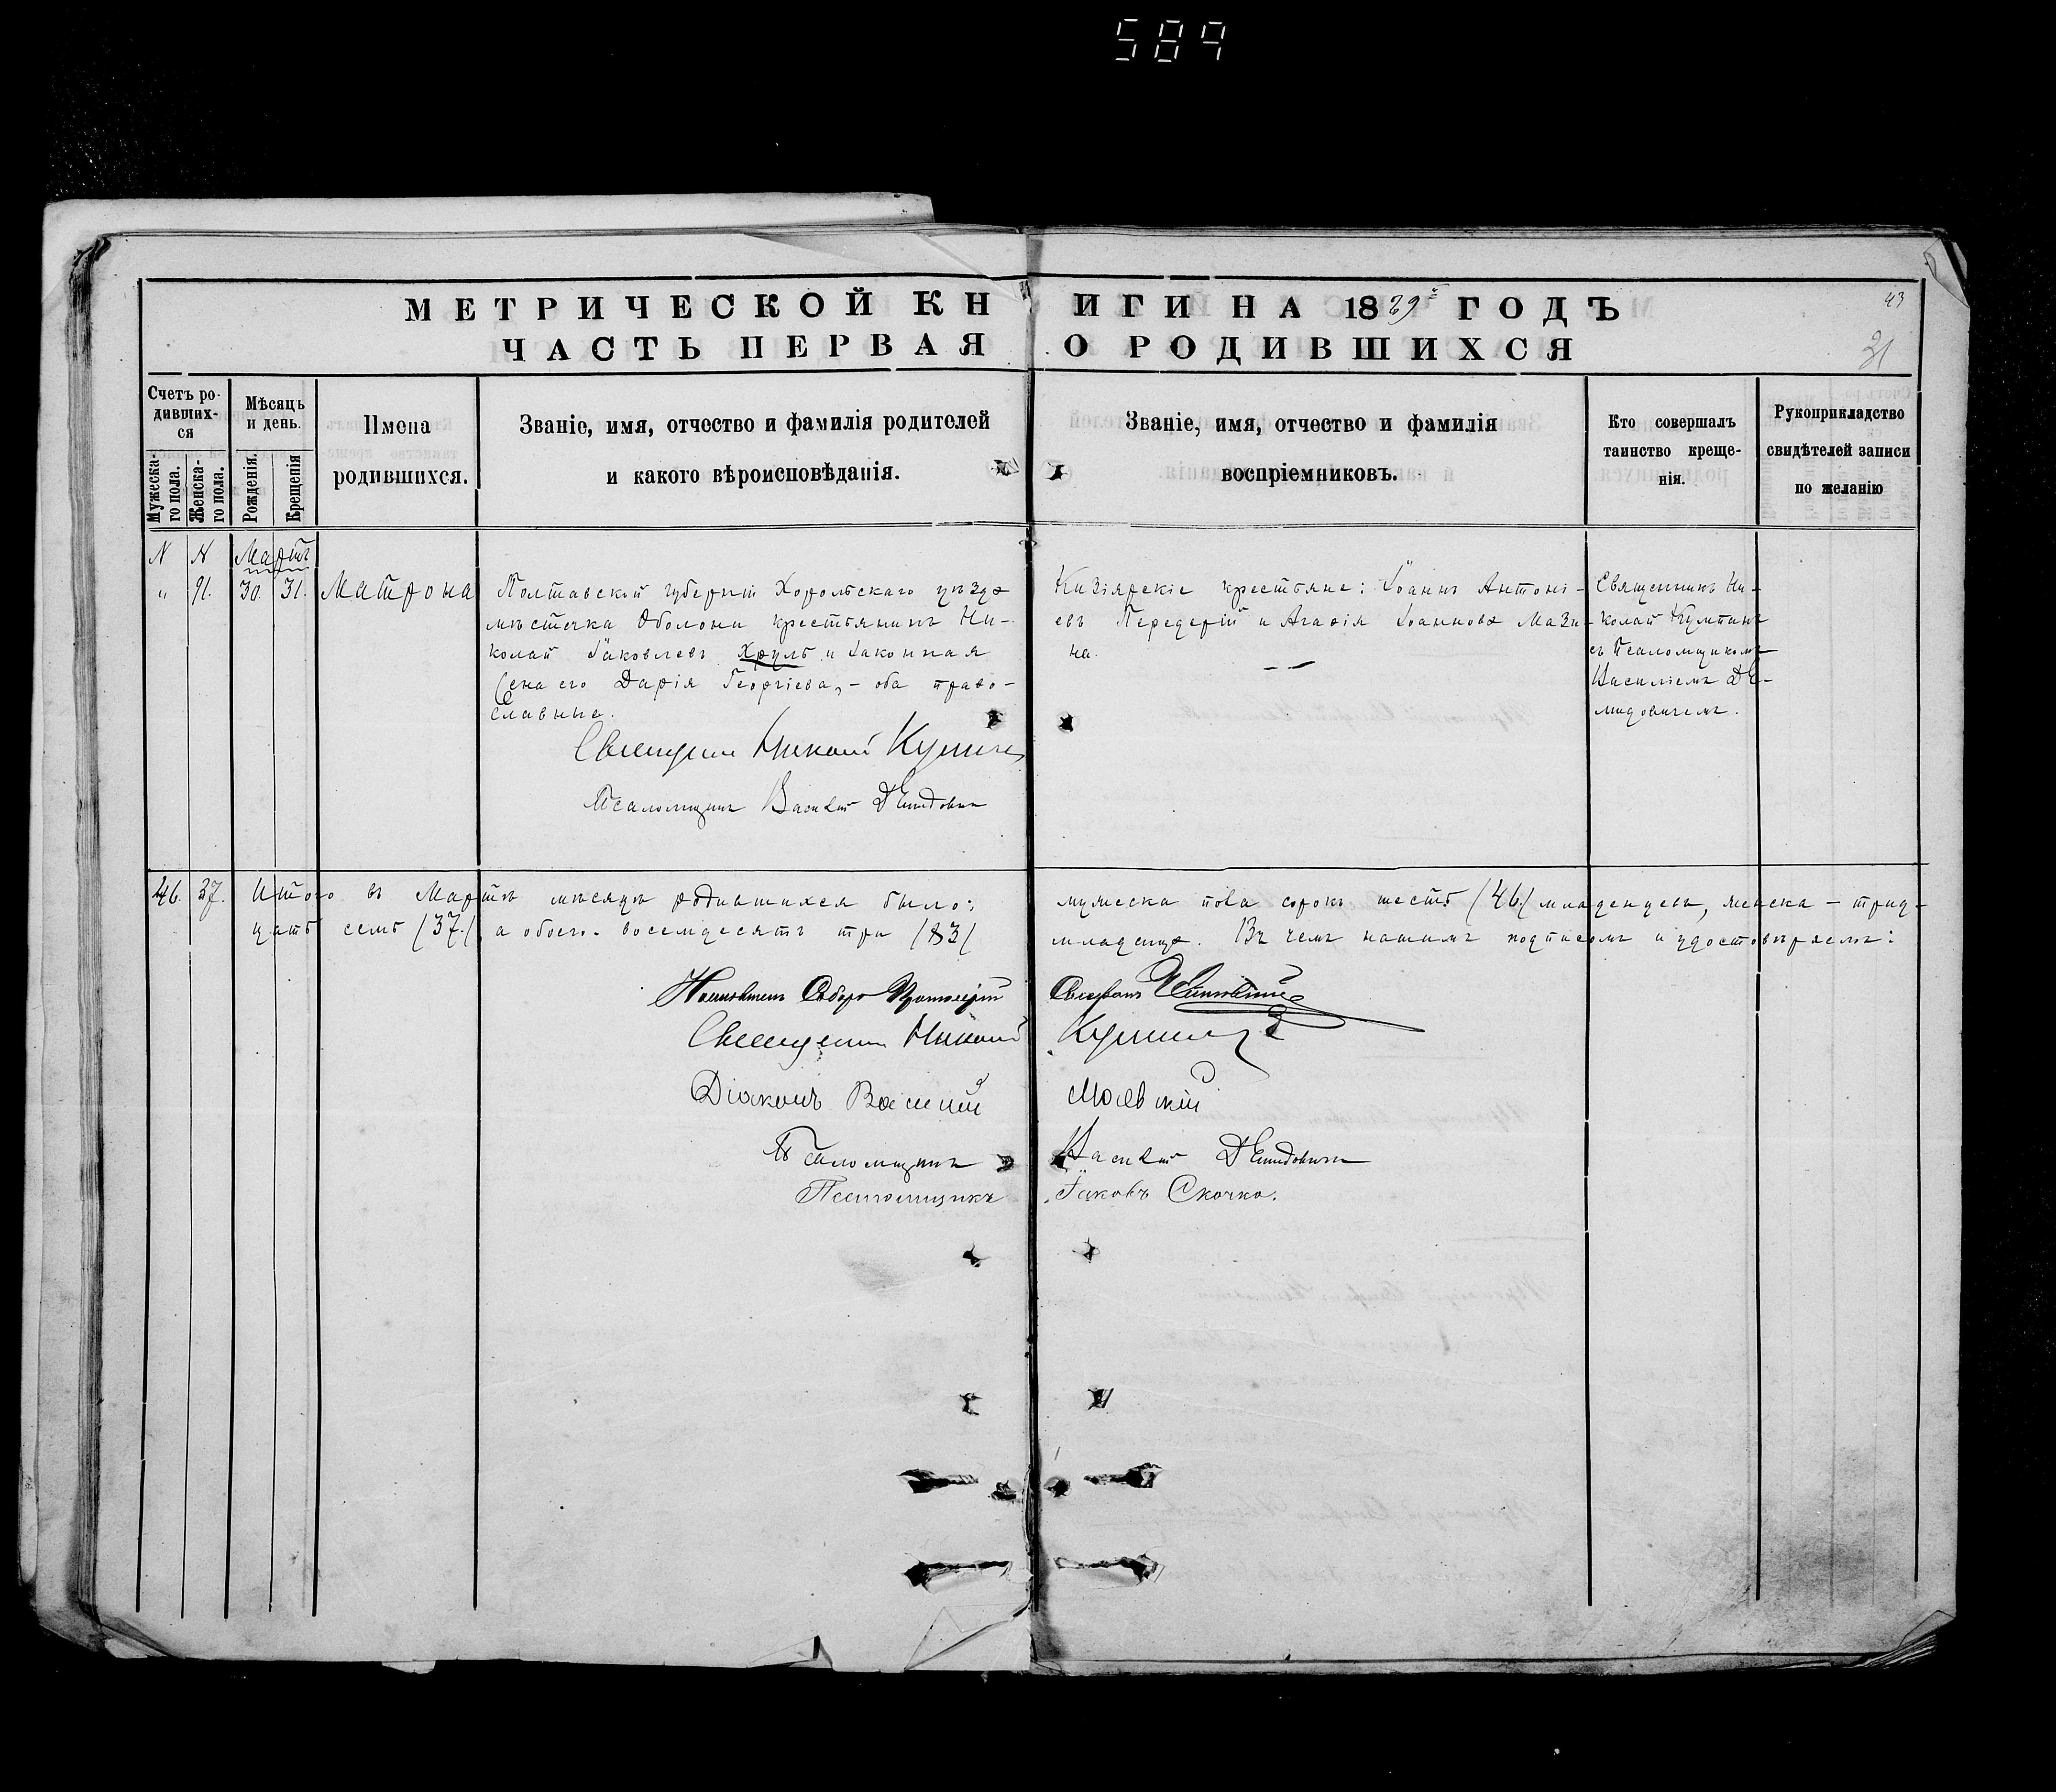 589
МЕТРИЧЕСКОЙ КНИГИ НА 1889й ГОДЪ
43
ЧАСТЬ ПЕРВАЯ О РОДИВШИХСЯ
31
Счетъ родившихся
Мужескаго пола.
Женскаго пола.
Мѣсяцъ и день.
Рожденія.
Крещенія
Имена
родившихся.
Званіе, имя, отчество и фамилія родителей
и какого вѣроисповѣданія.
Званіе, имя, отчество и фамилія
воспріемниковъ.
Кто совершалъ
таинство креще-
нія.
Рукоприкладство
свидѣтелей записи
по желанію
N N Мартъ
" 91. 30. 31. Матрона
Полтавской губерніи Хорольскаго уѣзда
мѣстечка Оболони крестьянинъ Ни-
колай Іаковлевъ Хруль и законная
жена его Дарія Георгіева, - оба право-
славные.
Священникъ Николай
Псаломщикъ Василій Демидовичъ
Кизіярскіе крестьяне: Іоаннъ Антоні-
евъ Передерій и Агафія Іоаннова Мази-
на.
Священникъ Ни-
колай
съ Псаломщикомъ
Василіемъ Де-
мидовичемъ.
46. 37. Итого въ Мартѣ мѣсяцѣ родившихся было: мужеска пола сорокъ шесть (46) младенцевъ, женска - трид-
цать семь (37.), а обоего - восемдесятъ три (83) младенца. Въ чемъ нашимъ подписомъ и удостовѣряемъ:
Настоятель Собора Протоіерей
Священникъ Николай
Діаконъ Василій Маевскій
Псаломщикъ Василій Демидовичъ
Псаломщикъ Іаковъ Скочко.